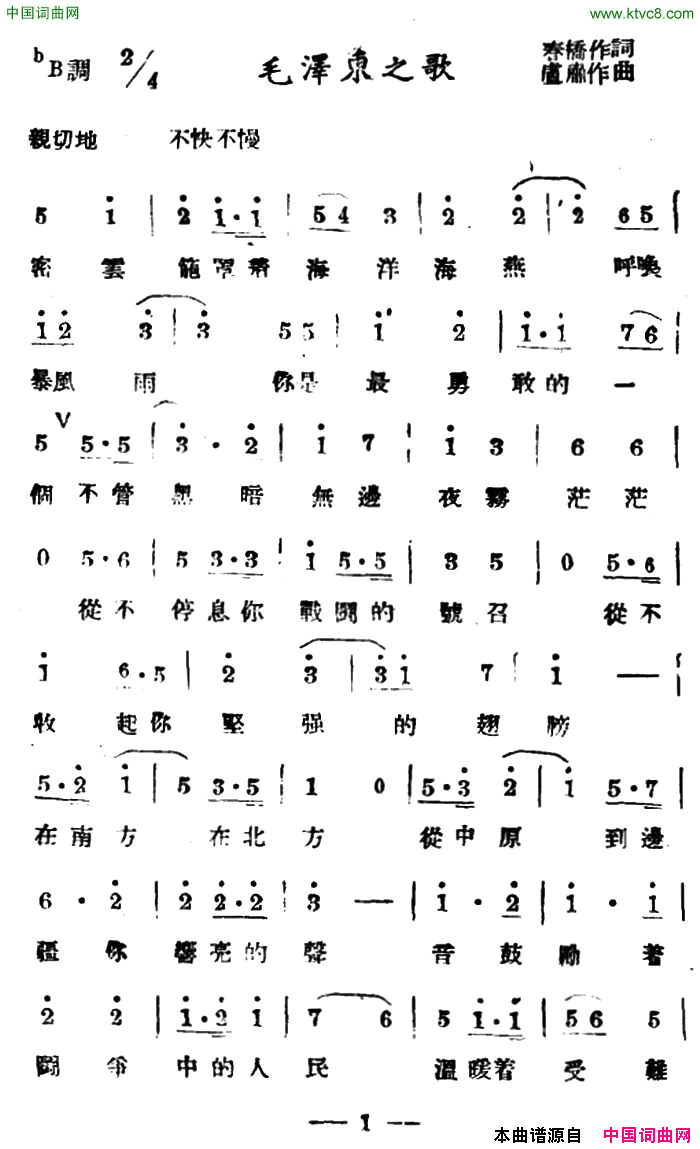 中国词曲网
www.ktvc8.com
bB調 2/4 毛澤東之歌 春橋作詞
盧肅作曲
親切地 不快不慢
5 i | 2 i·i | 54 3 | 2 2 | 2 65 |
密雲籠罩着海洋海燕 呼喚
i2 3 | 3 55 | i 2 | i·i 76 |
暴風雨 你是最勇敢的一
5 V 5·5 | 3·2 | i 7 | i 3 | 6 6
個不管黑暗無邊夜霧茫茫
0 5·6 | 5 3·3 | i 5·5 | 3 5 | 0 5·6
從不停息你戰鬪的號召 從不
i 6·5 | 2 3 | 3i 7 | i —
收起你堅强的翅膀
5·2 i | 5 3·5 | 1 0 | 5·3 2 | i 5·7
在南方 在北方 從中原 到邊
6·2 | 2 2·2 | 3 — | i·2 | i·i
疆你響亮的聲音鼓勵着
2 2 | i·2 i | 7 6 | 5 i·i | 56 5
鬪爭中的人民 溫暖着受難
— 1 —
本曲谱源自 中国词曲网